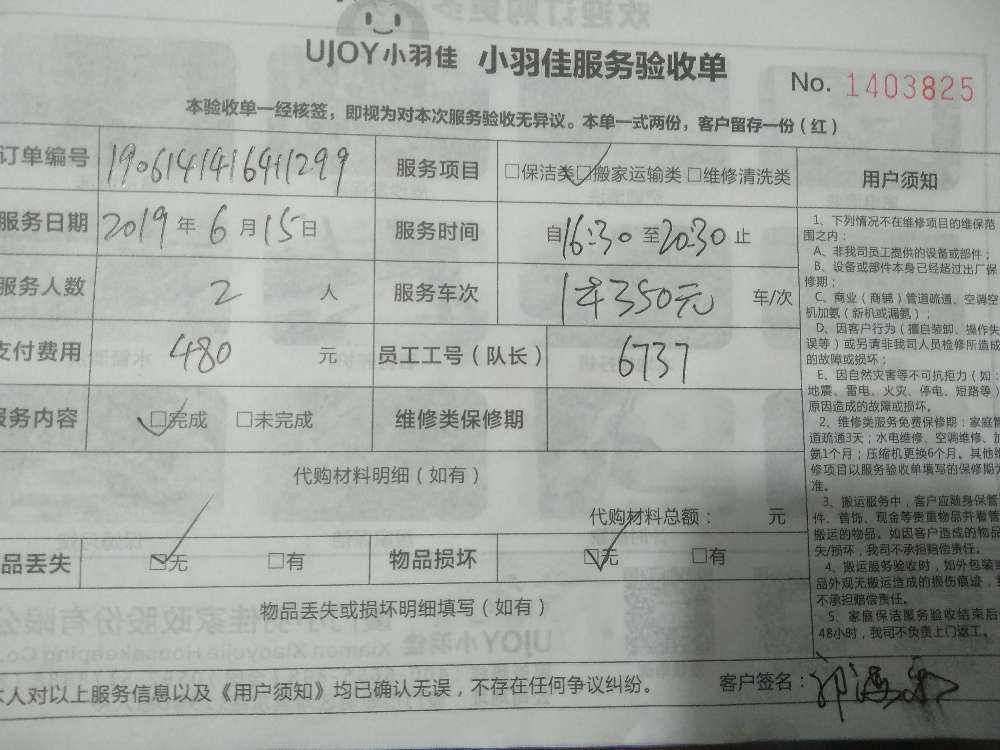 UJOY小羽佳 小羽佳服务验收单 No. 1403825
本验收单一经核签，即视为对本次服务验收无异议。本单一式两份，客户留存一份（红）
订单编号 190614141641299 服务项目 □保洁类 □搬家运输类 □维修清洗类 用户须知
服务日期 2019 年 6 月 15 日 服务时间 自 16:30 至 20:30 止
服务人数 2 人 服务车次 1车350元 车/次
支付费用 480 元 员工工号（队长） 6737
服务内容 □完成 □未完成 维修类保修期
代购材料明细（如有）
代购材料总额： 元
品丢失 □无 □有 物品损坏 □无 □有
物品丢失或损坏明细填写（如有）
本人对以上服务信息以及《用户须知》均已确认无误，不存在任何争议纠纷。 客户签名：
1、下列情况不在维修项目的维保范
围之内：
A、非我司员工提供的设备或部件；
B、设备或部件本身已经超过出厂保
修期；
C、商业（商铺）管道疏通、空调空
机加氨（新机或漏氨）；
D、因客户行为（擅自装卸、操作失
误等）或另请非我司人员检修所造成
的故障或损坏；
E、因自然灾害等不可抗拒力（如：
地震、雷电、火灾、停电、短路等）
原因造成的故障或损坏。
2、维修类服务免费保修期：家庭管
道疏通3天；水电维修、空调维修、加
氨1个月；压缩机更换6个月。其他维
修项目以服务验收单填写的保修期为
准。
3、搬运服务中，客户应随身保管
件、首饰、现金等贵重物品并看管
搬运的物品。如因客户造成的物品
失/损坏，我司不承担赔偿责任。
4、搬运服务验收时，如外包装
品外观无搬运造成的损伤痕迹，
不承担赔偿责任。
5、家庭保洁服务验收结束后
48小时，我司不负责上门返工。